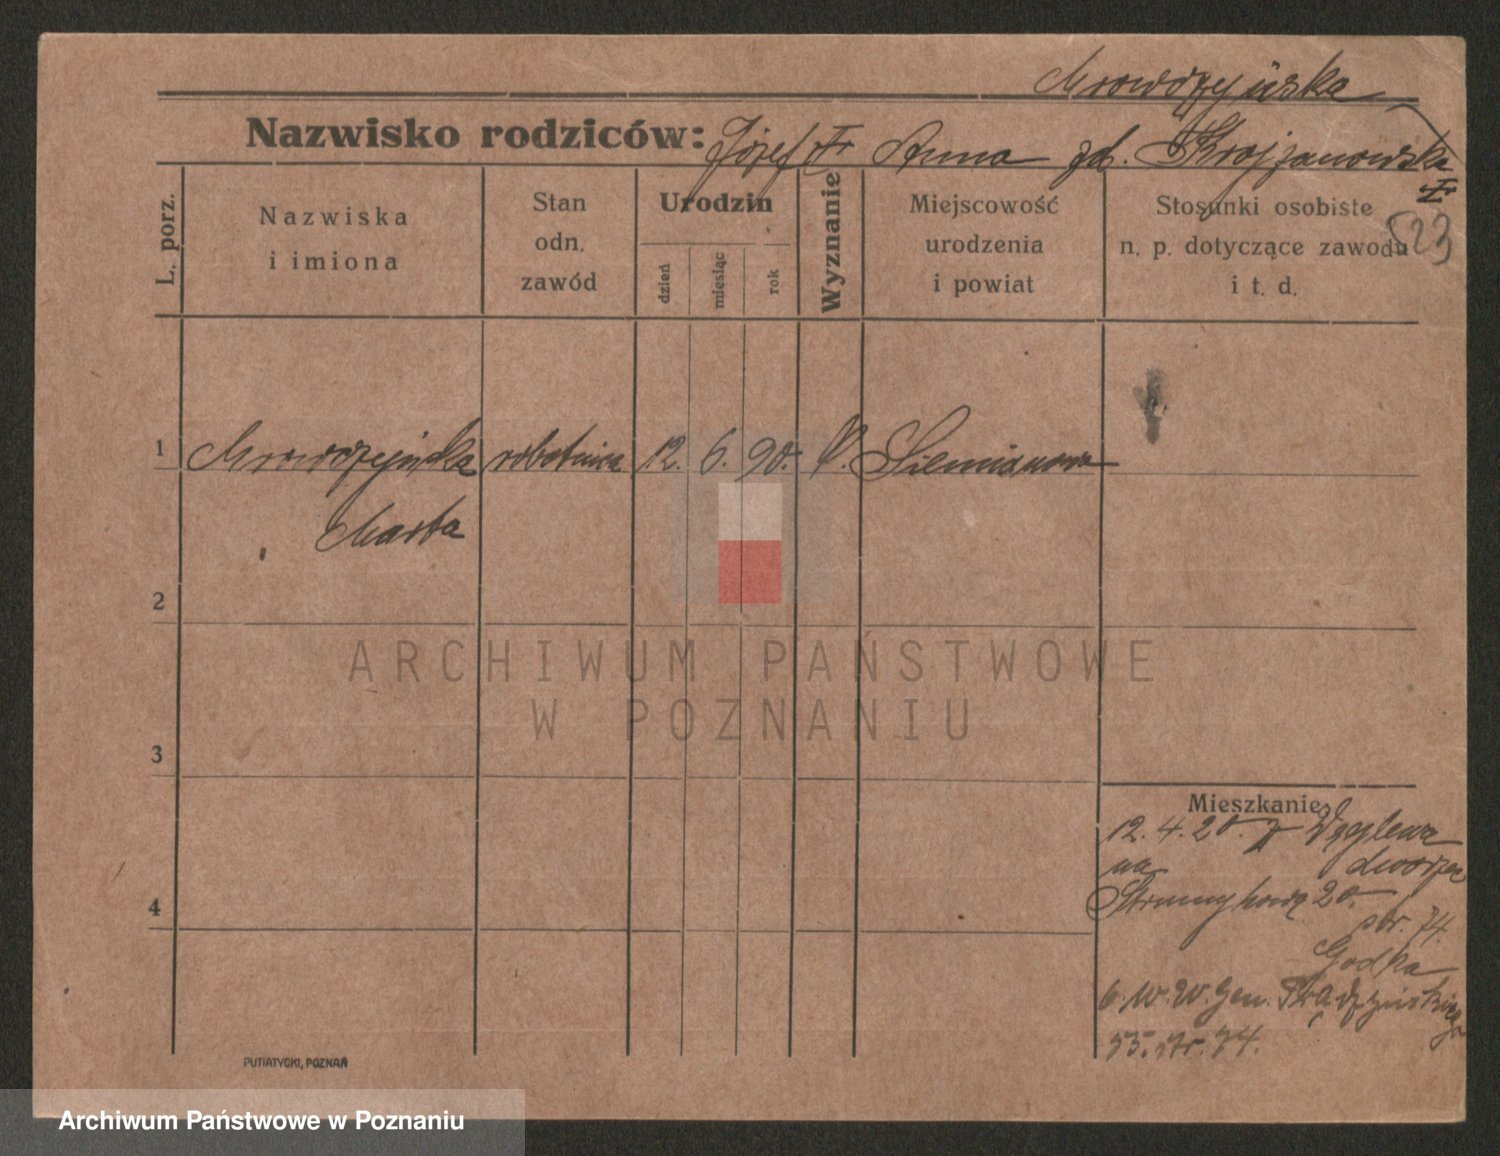 Mrowczyńska
Nazwisko rodziców: Józef Fr Anna zd. Krojzanowska
Fr
L. porz.
Nazwiska
i imiona
Stan
odn.
zawód
Urodzin
dzień
miesiąc
rok
Wyznanie
Miejscowość
urodzenia
i powiat
Stosunki osobiste
n. p. dotyczące zawodu
i t. d.
523
1 Mrowczyńska robotnica 12. 6. 90. Siemianowo
Marta
2
3
4
Mieszkanie
12.4.20. z Węglewa
na dworzec
Strumykową 20.
str. 74.
Godka
6. W. W. Gen. Prądzyńskiego
55. Nr. 74.
PUTIATYCKI, POZNAŃ
ARCHIWUM PAŃSTWOWE
W POZNANIU
Archiwum Państwowe w Poznaniu